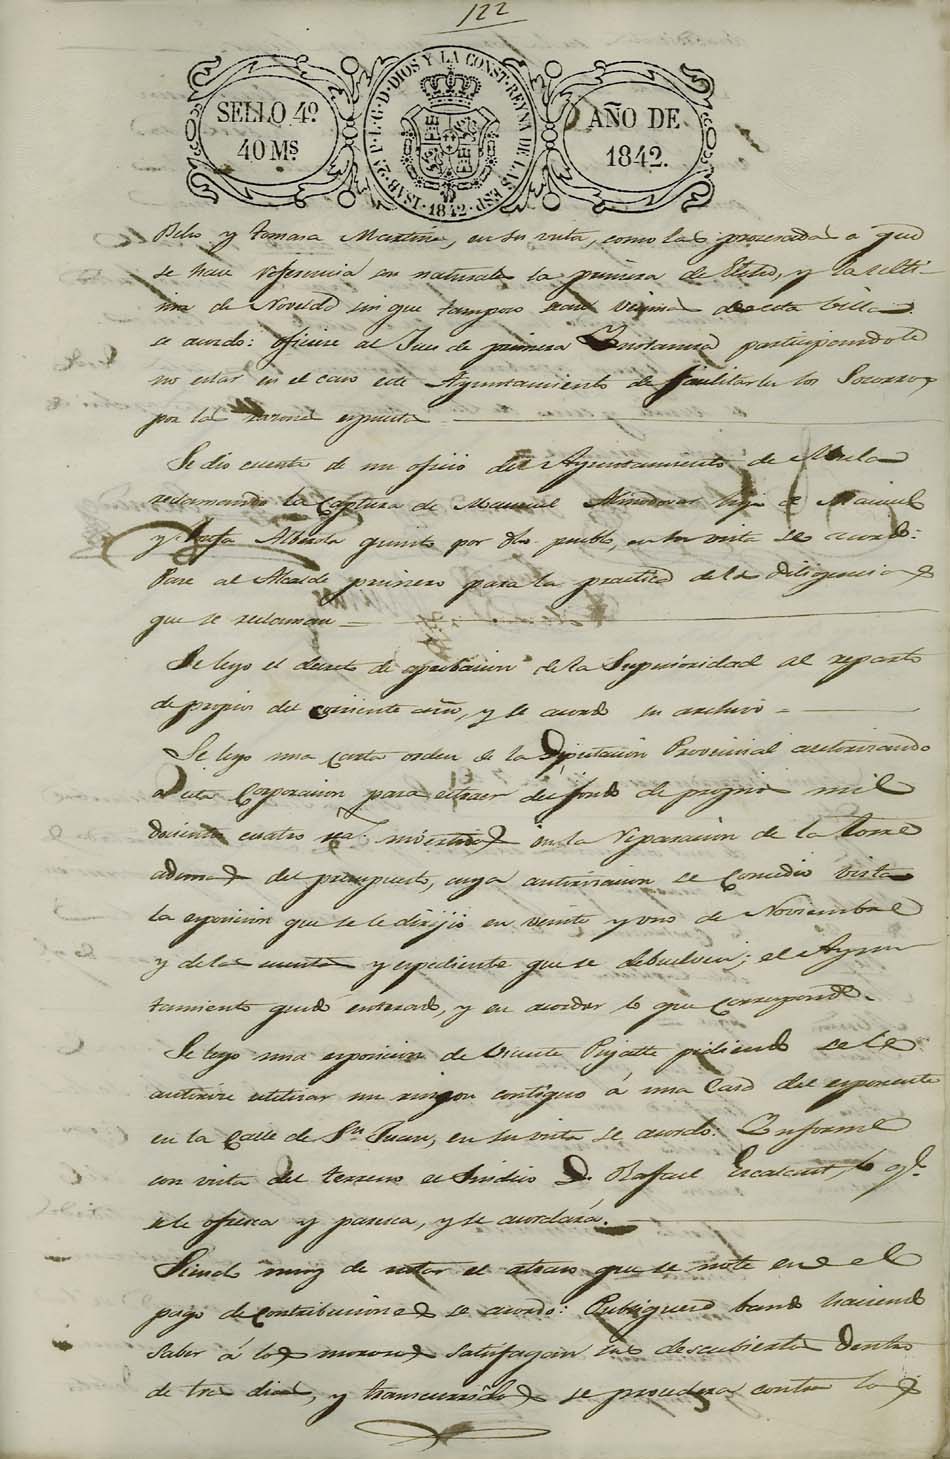 122
SELLO 4º
40 Mˢ
ISAB. 2ª P. L. G. D. DIOS Y LA CONST. REYNA DE LAS ESP. 1842
AÑO DE
1842.
y Tomasa Martine, en su vista, como las procesadas a que
se hace referencia son naturales la primera de Elche, y la ulti-
ma de Noveldá sin que tampoco sean de esta Villa
se acordo: oficiese al Jues de primera Instancia participandole
no estar en el caso este Ayuntamiento de facilitarla los Socorros
por la razone espuesta
Se dio cuenta de un oficio del Ayuntamiento de
reclamando la Captura de Manuel hijo de Manuel
y quinto por dho. pueblo, en su vista se acordó:
Pase al Alcalde primero para la practica de las diligencias
que se reclaman
Se leyo el decreto de aprobacion de la Superioridad al reparto
de propios del corriente año, y se acordo su archivo
Se leyo una Carta orden de la Diputacion Provincial autorizando
a esta Corporacion para estraer del fondo de propios mil
docientos cuatro rea. invertidos en la reparacion de la torre
ademas del presupuesto, cuya autorisacion se Concedio vista
la esposicion que se le dirijio en veinte y uno de Noviembre
y de las cuentas y espediente que se debuelven; el Ayun-
tamiento quedó enterado, y en acordar lo que Corresponde.
Se leyo una esposicion de Vicente pidiendo se le
autorice utilisar un rincon contiguo á una Casa del esponente
en la Calle de Sn Juan, en su vista se acordó: Informe
con vista del terreno el Sindico D. Rafael lo qe.
se le ofresca y paresca, y se acordará.
Siendo muy de notar el atraso que se nota en el
pago de contribuciones se acordo: Publiquese bando haciendo
saber á los morosos satisfagan sus descubiertos dentro
de tres dias, y transcurridos se procedera contra los